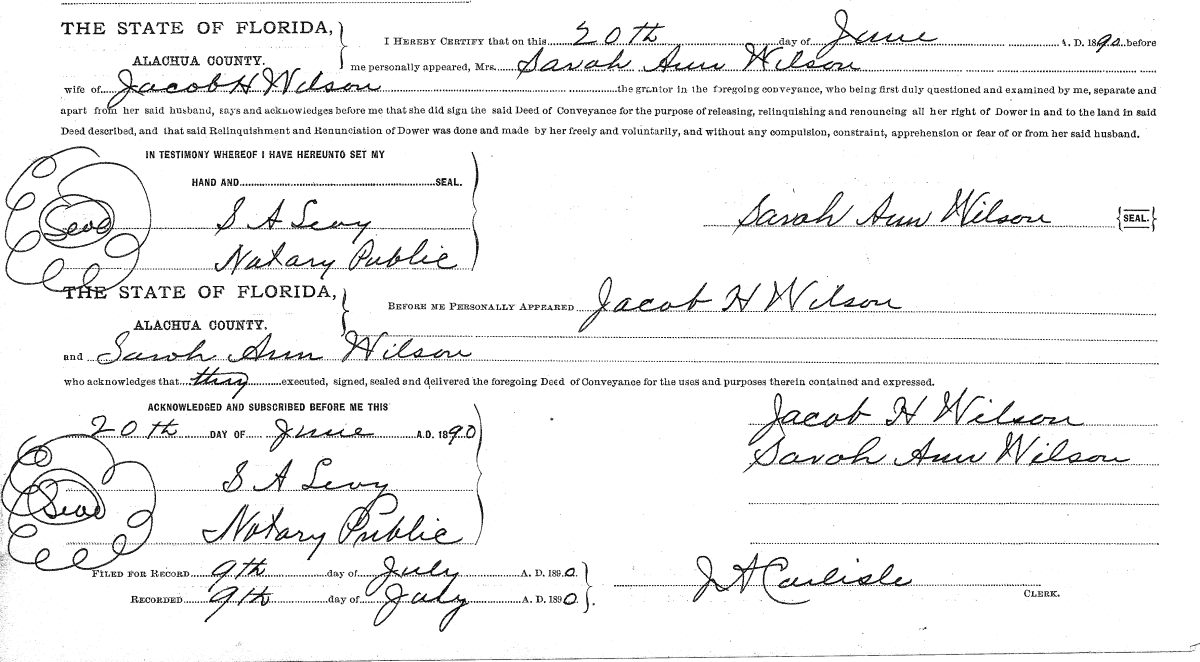 THE STATE OF FLORIDA,
ALACHUA COUNTY.
I HEREBY CERTIFY that on this 20th day of June A. D. 1890 before
me personally appeared, Mrs. Sarah Ann Wilson
wife of Jacob H Wilson the grantor in the foregoing conveyance, who being first duly questioned and examined by me, separate and
apart from her said husband, says and acknowledges before me that she did sign the said Deed of Conveyance for the purpose of releasing, relinquishing and renouncing all her right of Dower in and to the land in said
Deed described, and that said Relinquishment and Renunciation of Dower was done and made by her freely and voluntarily, and without any compulsion, constraint, apprehension or fear of or from her said husband.
IN TESTIMONY WHEREOF I HAVE HEREUNTO SET MY
HAND AND SEAL.
Seal S A Levy
Notary Public
Sarah Ann Wilson {SEAL.}
THE STATE OF FLORIDA,
ALACHUA COUNTY.
BEFORE ME PERSONALLY APPEARED Jacob H Wilson
and Sarah Ann Wilson
who acknowledges that they executed, signed, sealed and delivered the foregoing Deed of Conveyance for the uses and purposes therein contained and expressed.
ACKNOWLEDGED AND SUBSCRIBED BEFORE ME THIS
20th DAY OF June A.D. 1890
S A Levy
Seal
Notary Public
Jacob H Wilson
Sarah Ann Wilson
FILED FOR RECORD 9th day of July A. D. 1890.
RECORDED 9th day of July A. D. 1890.
J A Carlisle
CLERK.